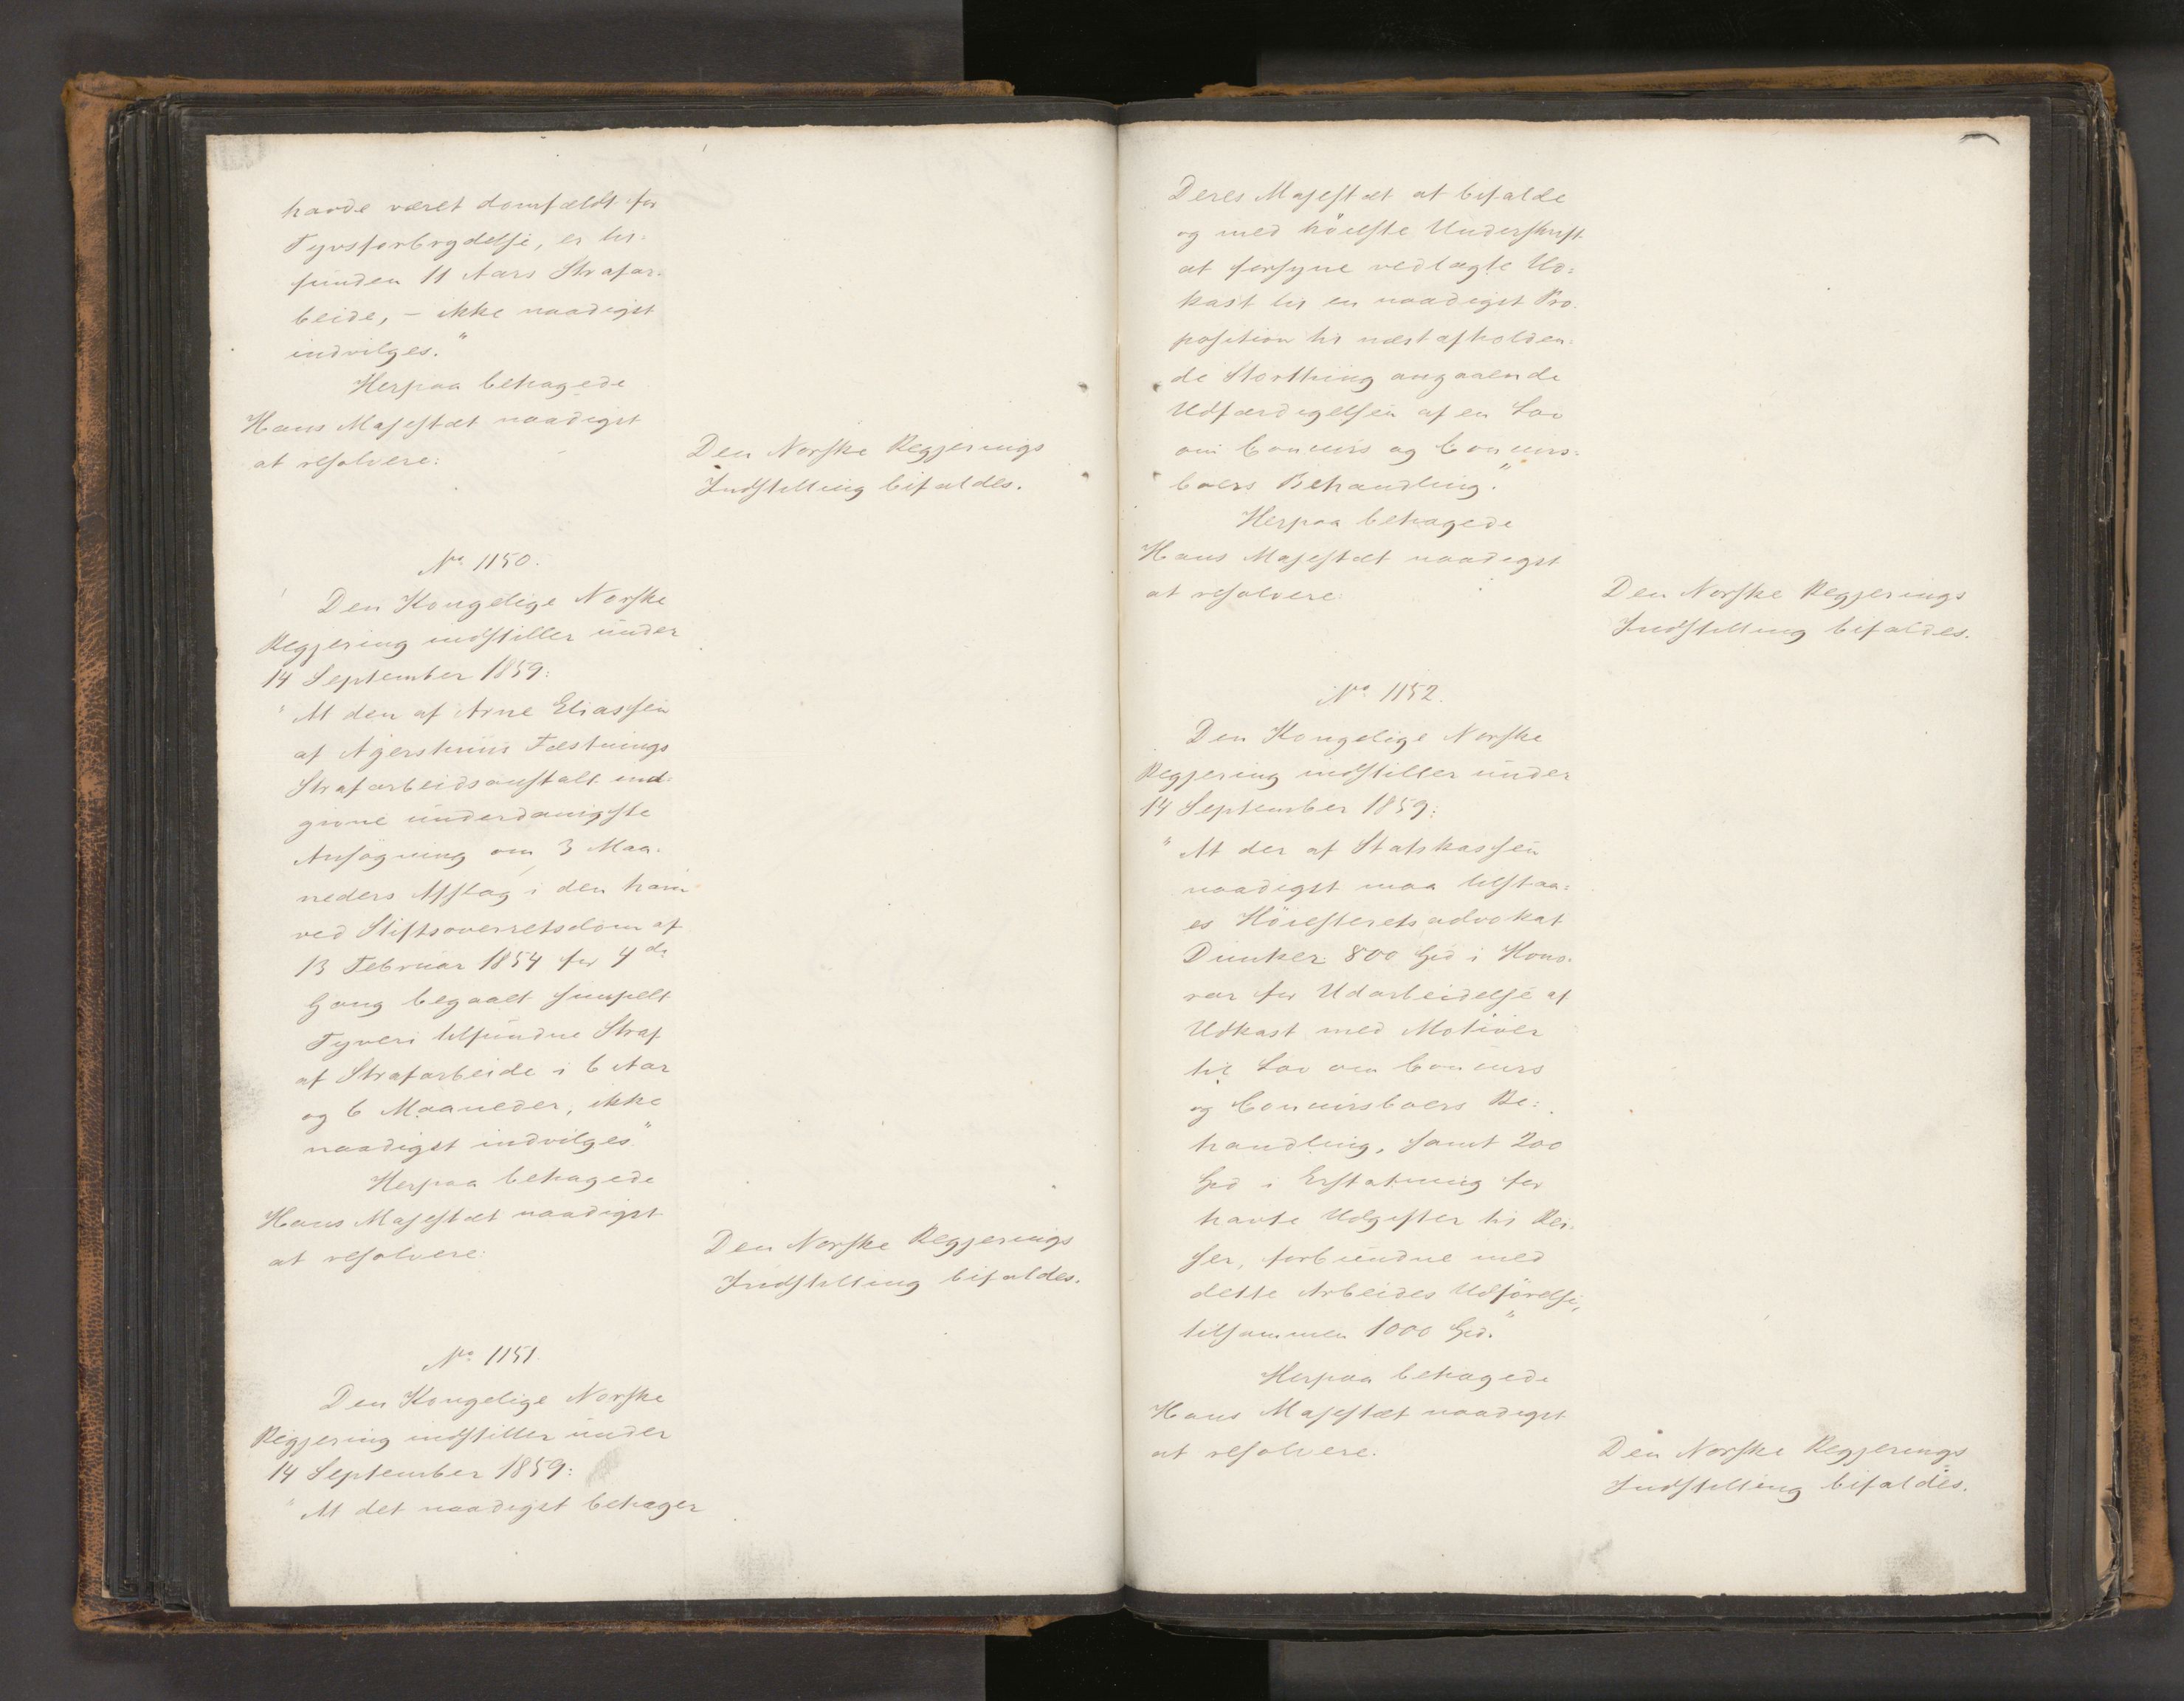 havde været domfældt for
Tyvsforbrydelse, er til-
funden 11 Aars Strafar-
beide, - ikke naadigst
indvilges."
Herpaa behagede
Hans Majestæt naadigst
at resolvere:
Den Norske Regjerings
Indstilling bifaldes.
No 1150.
Den Kongelige Norske
Regjering indstiller under
14 September 1859:
"At den af Arne Eliassen
af Agershuus Fæstnings
Strafarbeidsanstalt ind-
givne underdanigste
Ansögning om 3 Maa-
neders Afslag i den ham
ved Stiftsoverretsdom af
13 Februar 1854 for 4de
Gang begaaet simpelt
Tyveri tilfundne Straf
af Strafarbeide i 6 Aar
og 6 Maaneder, ikke
naadigst indvilges"
Herpaa behagede
Hans Majestæt naadigst
at resolvere:
Den Norske Regjerings
Indstilling bifaldes.
No 1151.
Den Kongelige Norske
Regjering indstiller under
14 September 1859:
"At det naadigst behager
Deres Majestæt at bifalde
og med höieste Underskrift
at forsyne vedlagte Ud-
kast til en naadigst Pro-
position til næst afholden-
de Storthing angaaende
Udfærdigelsen af en Lov
om Concurs og Concurs-
boers Behandling."
Herpaa behagede
Hans Majestæt naadigst
at resolvere:
Den Norske Regjerings
Indstilling bifaldes.
No 1152.
Den Kongelige Norske
Regjering indstiller under
14 September 1859:
"At der af Statskassen
naadigst maa tilstaa-
es Höiesteretsadvokat
Dunker 800 Spd i Hono-
rar for Udarbeidelse af
Udkast med Motiver
til Lov om Concurs
og Concursboers Be-
handling, samt 200
Spd i Erstatning for
havte Udgifter til Rei-
ser, forbundne med
dette Arbeides Udförelse,
tilsammen 1000 Spd."
Herpaa behagede
Hans Majestæt naadigst
at resolvere.
Den Norske Regjerings
Indstilling bifaldes.